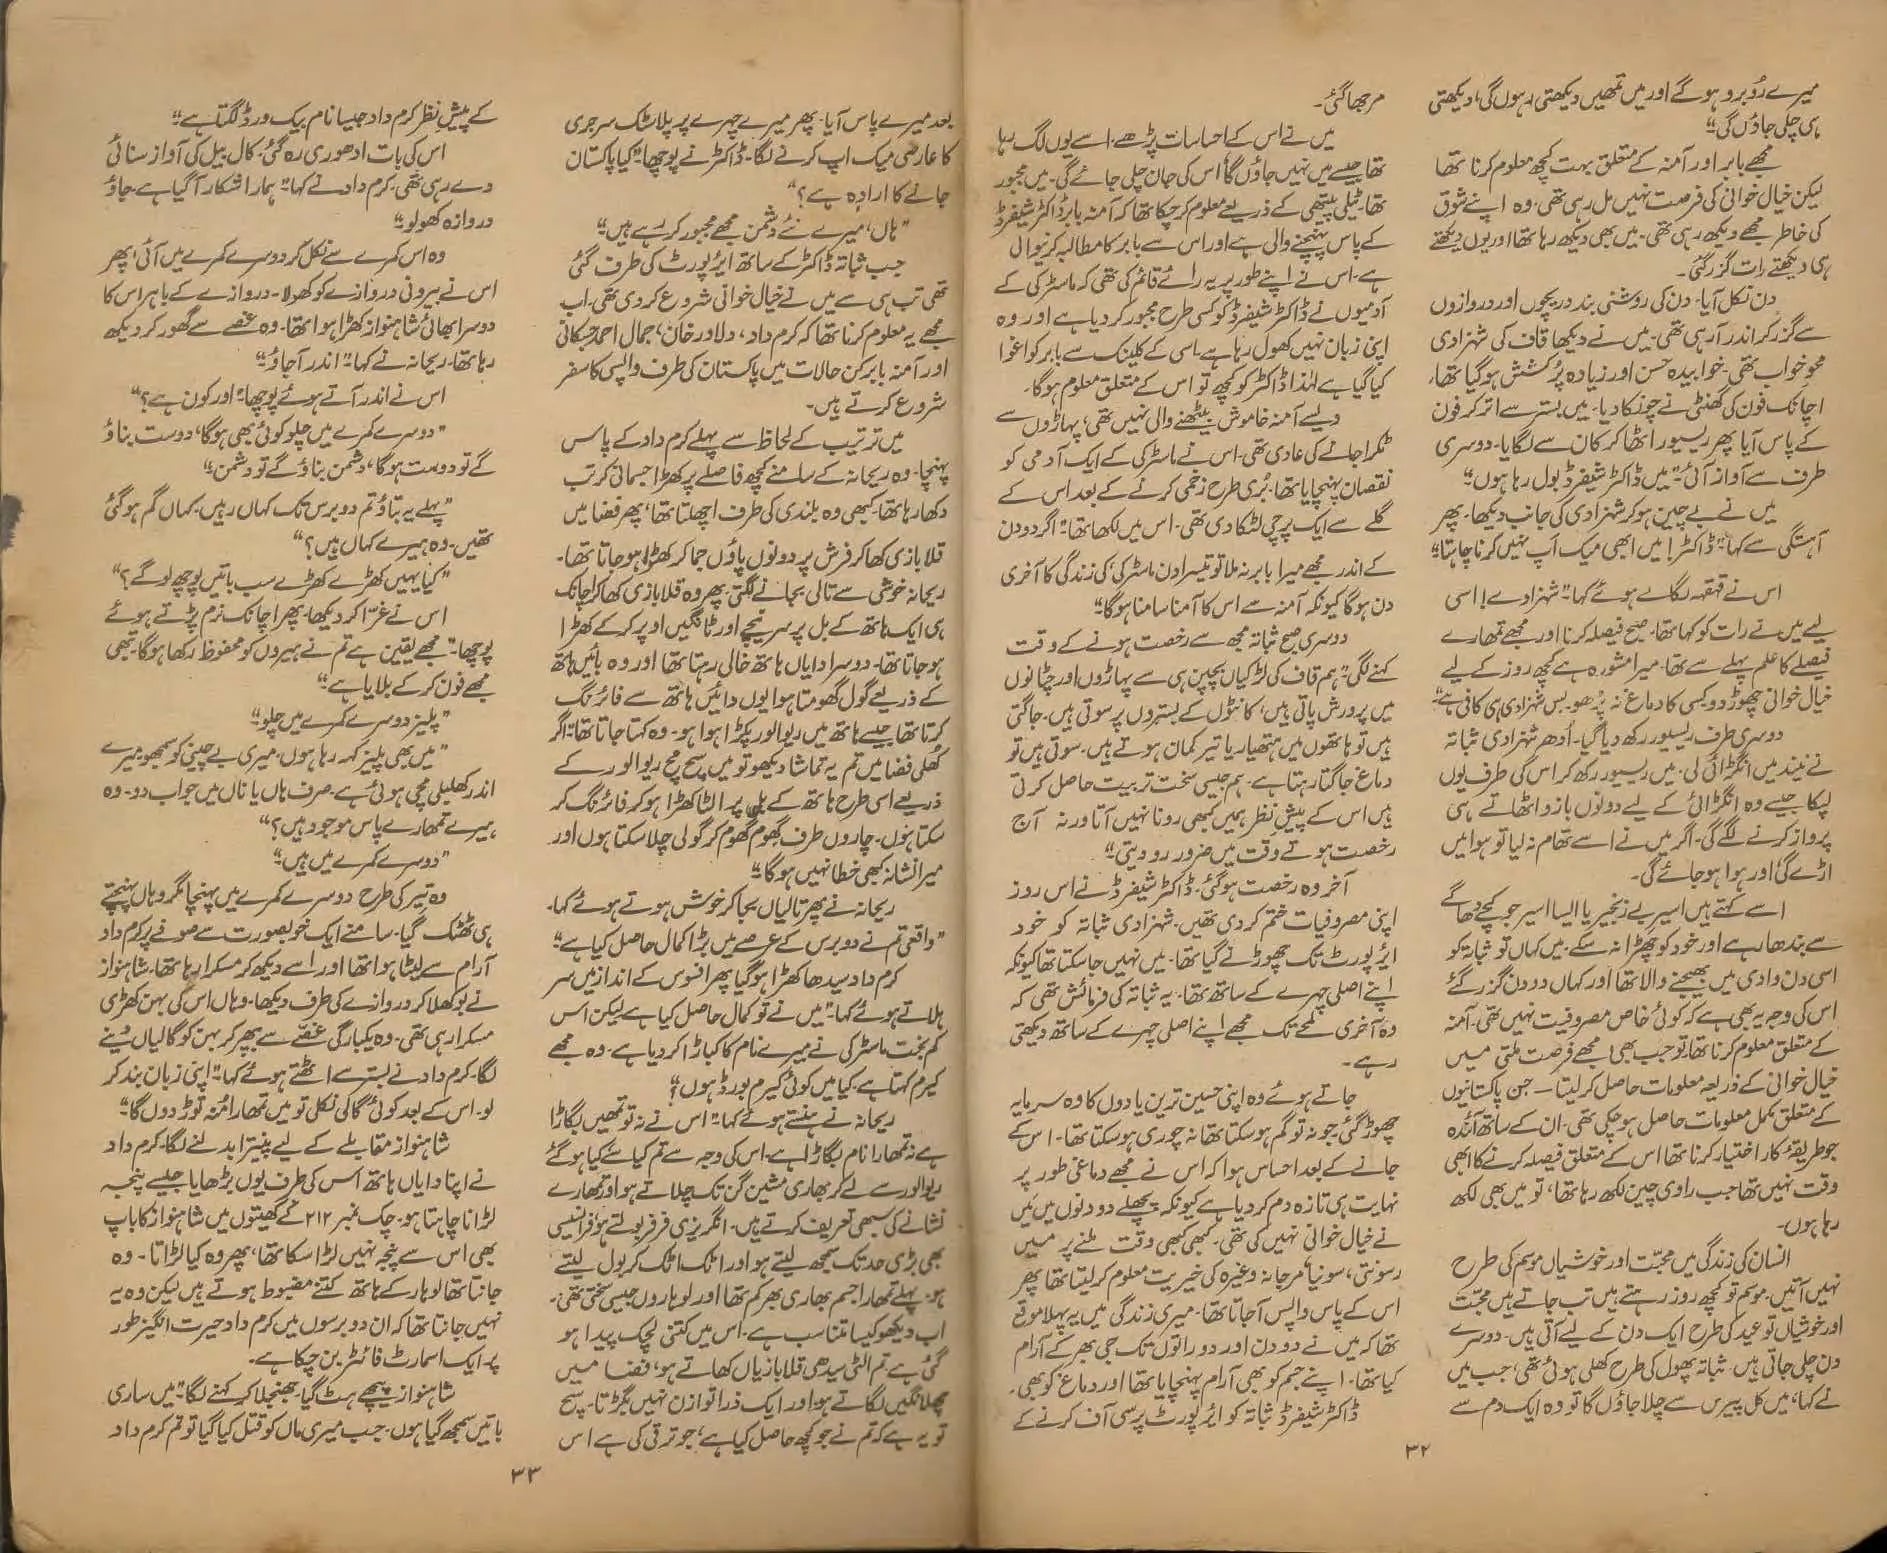 میرے رُوبرو ہوگے اور میں تمھیں دیکھتی رہوں گی، دیکھتی
ہی چلی جاؤں گی۔"
مجھے بابر اور آمنہ کے متعلق بہت کچھ معلوم کرنا تھا
لیکن خیال خوانی کی فرصت نہیں مل رہی تھی۔ وہ اپنے شوق
کی خاطر مجھے دیکھ رہی تھی۔ میں بھی دیکھ رہا تھا اور یوں دیکھتے
ہی دیکھتے رات گزر گئی۔
دن نکل آیا۔ دن کی روشنی بند دریچوں اور دروازوں
سے گزر کر اندر آرہی تھی۔ میں نے دیکھا قاف کی شہزادی
محوِ خواب تھی۔ خوابیدہ حسن اور زیادہ پُرکشش ہوگیا تھا۔
اچانک فون کی گھنٹی نے چونکا دیا۔ میں بستر سے اتر کر فون
کے پاس آیا پھر ریسیور اٹھا کر کان سے لگایا۔ دوسری
طرف سے آواز آئی۔ "میں ڈاکٹر شیفرڈ بول رہا ہوں۔"
میں نے بے چین ہوکر شہزادی کی جانب دیکھا۔ پھر
آہستگی سے کہا۔ "ڈاکٹر! میں ابھی میک اَپ نہیں کرنا چاہتا۔"
اس نے قہقہہ لگاتے ہوئے کہا۔ "شہزادے! اسی
لیے میں نے رات کو کہا تھا۔ صبح فیصلہ کرنا اور مجھے تمھارے
فیصلے کا علم پہلے سے تھا۔ میرا مشورہ ہے کچھ روز کے لیے
خیال خوانی چھوڑ دو۔ کسی کا دماغ نہ پڑھو۔ بس شہزادی ہی کافی ہے"
دوسری طرف ریسیور رکھ دیا گیا۔ اُدھر شہزادی ثباتہ
نے نیند میں انگڑائی لی۔ میں ریسیور رکھ کر اس کی طرف یوں
لپکا جیسے وہ انگڑائی کے لیے دونوں بازو اٹھاتے ہی
پرواز کرنے لگے گی۔ اگر میں نے اسے تھام نہ لیا تو ہوا میں
اڑے گی اور ہوا ہو جائے گی۔
اسے کہتے ہیں اسیرِ بے زنجیر یا ایسا اسیر جو کچے دھاگے
سے بندھا رہے اور خود کو چھڑا نہ سکے۔ میں کہاں تو ثباتہ کو
اسی دن وادی میں بھیجنے والا تھا اور کہاں دو دن گزر گئے
اس کی وجہ یہ بھی ہے کہ کوئی خاص مصروفیت نہیں تھی۔ آمنہ
کے متعلق معلوم کرنا تھا۔ تو جب بھی مجھے فرصت ملتی میں
خیال خوانی کے ذریعہ معلومات حاصل کر لیتا۔ جن پاکستانیوں
کے متعلق مکمل معلومات حاصل ہو چکی تھی۔ ان کے ساتھ آئندہ
جو طریقۂ کار اختیار کرنا تھا اس کے متعلق فیصلہ کرنے کا ابھی
وقت نہیں تھا جب راوی چین لکھ رہا تھا، تو میں بھی لکھ
رہا ہوں۔
انسان کی زندگی میں محبّت اور خوشیاں موسم کی طرح
نہیں آتیں۔ موسم تو کچھ روز رہتے ہیں تب جاتے ہیں محبّت
اور خوشیاں تو عید کی طرح ایک دن کے لیے آتی ہیں۔ دوسرے
دن چلی جاتی ہیں۔ ثباتہ پھول کی طرح کھلی ہوئی تھی، جب میں
نے کہا، میں کل پیرس سے چلا جاؤں گا تو وہ ایک دم سے
مرجھا گئی۔
میں نے اس کے احساسات پڑھے۔ اسے یوں لگ رہا
تھا جیسے میں نہیں جاؤں گا اس کی جان چلی جائے گی۔ میں مجبور
تھا۔ ٹیلی پیتھی کے ذریعے معلوم کر چکا تھا کہ آمنہ بابر ڈاکٹر شیفرڈ
کے پاس پہنچنے والی ہے اور اس سے بابر کا مطالبہ کرنیوالی
ہے۔ اس نے اپنے طور پر یہ رائے قائم کی تھی کہ ماسٹر کی کے
آدمیوں نے ڈاکٹر شیفرڈ کو کسی طرح مجبور کر دیا ہے اور وہ
اپنی زبان نہیں کھول رہا ہے۔ اسی کے کلینک سے بابر کو اغوا
کیا گیا ہے لہٰذا ڈاکٹر کو کچھ تو اس کے متعلق معلوم ہوگا۔
ویسے آمنہ خاموش بیٹھنے والی نہیں تھی، پہاڑوں سے
ٹکرا جانے کی عادی تھی۔ اس نے ماسٹر کی کے ایک آدمی کو
نقصان پہنچایا تھا۔ بُری طرح زخمی کرنے کے بعد اس کے
گلے سے ایک پرچی لٹکا دی تھی۔ اس میں لکھا تھا۔ "اگر دو دن
کے اندر مجھے میرا بابر نہ ملا تو تیسرا دن ماسٹر کی، کی زندگی کا آخری
دن ہوگا کیونکہ آمنہ سے اس کا آمنا سامنا ہوگا۔"
دوسری صبح ثباتہ مجھ سے رخصت ہونے کے وقت
کہنے لگی۔ "ہم قاف کی لڑکیاں بچپن ہی سے پہاڑوں اور چٹانوں
میں پرورش پاتی ہیں، کانٹوں کے بستروں پر سوتی ہیں۔ جاگتی
ہیں تو ہاتھوں میں ہتھیار یا تیر کمان ہوتے ہیں۔ سوتی ہیں تو
دماغ جاگتا رہتا ہے۔ ہم جیسی سخت تربیت حاصل کرتی
ہیں اس کے پیش نظر ہمیں کبھی رونا نہیں آتا ورنہ آج
رخصت ہوتے وقت میں ضرور رو دیتی۔"
آخر وہ رخصت ہوگئی۔ ڈاکٹر شیفرڈ نے اس روز
اپنی مصروفیات ختم کر دی تھیں۔ شہزادی ثباتہ کو خود
ایئرپورٹ تک چھوڑنے گیا تھا۔ میں نہیں جا سکتا تھا کیونکہ
اپنے اصلی چہرے کے ساتھ تھا۔ یہ ثباتہ کی فرمائش تھی کہ
وہ آخری لمحے تک مجھے اپنے اصلی چہرے کے ساتھ دیکھتی
رہے۔
جاتے ہوئے وہ اپنی حسین ترین یادوں کا وہ سرمایہ
چھوڑ گئی۔ جو نہ تو گم ہو سکتا تھا نہ چوری ہو سکتا تھا۔ اس کے
جانے کے بعد احساس ہوا کہ اس نے مجھے دماغی طور پر
نہایت ہی تازہ دم کر دیا ہے کیونکہ پچھلے دو دنوں میں میں
نے خیال خوانی نہیں کی تھی۔ کبھی کبھی وقت ملنے پر میں
رسونتی، سونیا، مرجانہ وغیرہ کی خیریت معلوم کر لیتا تھا پھر
اس کے پاس واپس آ جاتا تھا۔ میری زندگی میں یہ پہلا موقع
تھا کہ میں نے دو دن اور دو راتوں تک جی بھر کے آرام
کیا تھا۔ اپنے جسم کو بھی آرام پہنچایا تھا اور دماغ کو بھی۔
ڈاکٹر شیفرڈ ثباتہ کو ایئرپورٹ پر سی آف کرنے کے
۳۲
بعد میرے پاس آیا۔ پھر میرے چہرے پر پلاسٹک سرجری
کا عارضی میک اپ کرنے لگا۔ ڈاکٹر نے پوچھا۔ "کیا پاکستان
جانے کا ارادہ ہے؟"
"ہاں، میرے نئے دشمن مجھے مجبور کر رہے ہیں۔"
جب ثباتہ ڈاکٹر کے ساتھ ایئرپورٹ کی طرف گئی
تھی تب ہی سے میں نے خیال خوانی شروع کر دی تھی۔ اب
مجھے یہ معلوم کرنا تھا کہ کرم داد، دلاور خان، جمال احمد جسکانی
اور آمنہ بابر کن حالات میں پاکستان کی طرف واپسی کا سفر
شروع کرتے ہیں۔
میں ترتیب کے لحاظ سے پہلے کرم داد کے پاس
پہنچا۔ وہ ریحانہ کے سامنے کچھ فاصلے پر کھڑا جسمانی کرتب
دکھا رہا تھا۔ کبھی وہ بلندی کی طرف اچھلتا تھا، پھر فضا میں
قلابازی کھا کر فرش پر دونوں پاؤں جما کر کھڑا ہو جاتا تھا۔
ریحانہ خوشی سے تالی بجانے لگتی۔ پھر وہ قلابازی کھا کر اچانک
ہی ایک ہاتھ کے بل پر سر نیچے اور ٹانگیں اوپر کر کے کھڑا
ہو جاتا تھا۔ دوسرا دایاں ہاتھ خالی رہتا تھا اور وہ بائیں ہاتھ
کے ذریعے گول گھومتا ہوا یوں دائیں ہاتھ سے فائرنگ
کرتا تھا جیسے ہاتھ میں ریوالور پکڑا ہوا ہو۔ وہ کہتا جاتا تھا۔ "اگر
کُھلی فضا میں تم یہ تماشا دیکھو تو میں سچ مچ ریوالور کے
ذریعے اسی طرح ہاتھ کے بل پر الٹا کھڑا ہو کر فائرنگ کر
سکتا ہوں۔ چاروں طرف گھوم گھوم کر گولی چلا سکتا ہوں اور
میرا نشانہ کبھی خطا نہیں ہوگا۔"
ریحانہ نے پھر تالیاں بجا کر خوش ہوتے ہوئے کہا۔
"واقعی تم نے دو برس کے عرصے میں بڑا کمال حاصل کیا ہے۔"
کرم داد سیدھا کھڑا ہو گیا پھر افسوس کے انداز میں سر
ہلاتے ہوئے کہا۔ "میں نے تو کمال حاصل کیا ہے لیکن اس
کم بخت ماسٹر کی نے میرے نام کا کباڑا کر دیا ہے۔ وہ مجھے
کیرم کہتا ہے۔ کیا میں کوئی کیرم بورڈ ہوں؟"
ریحانہ نے ہنستے ہوئے کہا۔ "اس نے نہ تو تمھیں بگاڑا
ہے نہ تمھارا نام بگاڑا ہے۔ اس کی وجہ سے تم کیا سے کیا ہو گئے
ریوالور سے لے کر بھاری مشین گن تک چلاتے ہو اور تمھارے
نشانے کی سبھی تعریف کرتے ہیں۔ انگریزی فرفر بولتے ہو فرانسیسی
بھی بڑی حد تک سمجھ لیتے ہو اور اٹک اٹک کر بول لیتے
ہو۔ پہلے تمھارا جسم بھاری بھرکم تھا اور لوہاروں جیسی سختی تھی۔
اب دیکھو کیسا متناسب ہے۔ اس میں کتنی لچک پیدا ہو
گئی ہے۔ تم الٹی سیدھی قلابازیاں کھاتے ہو، فضا میں
چھلانگیں لگاتے ہو اور ایک ذرا توازن نہیں بگڑتا۔ سچ
تو یہ ہے کہ تم نے جو کچھ حاصل کیا ہے، جو ترقی کی ہے اس
کے پیش نظر کرم داد جیسا نام بیک ورڈ لگتا ہے۔"
اس کی بات ادھوری رہ گئی۔ کال بیل کی آواز سنائی
دے رہی تھی۔ کرم داد نے کہا۔ "ہمارا شکار آ گیا ہے۔ جاؤ
دروازہ کھولو۔"
وہ اس کمرے سے نکل کر دوسرے کمرے میں آئی، پھر
اس نے بیرونی دروازے کو کھولا۔ دروازے کے باہر اس کا
دوسرا بھائی شاہنواز کھڑا ہوا تھا۔ وہ غصے سے گھور کر دیکھ
رہا تھا۔ ریحانہ نے کہا۔ "اندر آ جاؤ۔"
اس نے اندر آتے ہوئے پوچھا۔ "اور کون ہے؟"
"دوسرے کمرے میں چلو کوئی بھی ہوگا، دوست بناؤ
گے تو دوست ہوگا، دشمن بناؤ گے تو دشمن۔"
"پہلے یہ بتاؤ تم دو برس تک کہاں رہیں۔ کہاں گم ہو گئی
تھیں۔ وہ ہیرے کہاں ہیں؟"
"کیا یہیں کھڑے کھڑے سب باتیں پوچھ لو گے؟"
اس نے غرّا کر دیکھا۔ پھر اچانک نرم پڑتے ہوئے
پوچھا۔ "مجھے یقین ہے تم نے ہیروں کو محفوظ رکھا ہوگا۔ تبھی
مجھے فون کر کے بلایا ہے۔"
"پلیز دوسرے کمرے میں چلو۔"
"میں بھی پلیز کہہ رہا ہوں۔ میری بے چینی کو سمجھو۔ میرے
اندر کھلبلی مچی ہوئی ہے۔ صرف ہاں یا ناں میں جواب دو۔ وہ
ہیرے تمھارے پاس موجود ہیں؟"
"دوسرے کمرے میں ہیں۔"
وہ تیر کی طرح دوسرے کمرے میں پہنچا مگر وہاں پہنچتے
ہی ٹھٹک گیا۔ سامنے ایک خوبصورت سے صوفے پر کرم داد
آرام سے لیٹا ہوا تھا اور اسے دیکھ کر مسکرا رہا تھا۔ شاہنواز
نے بوکھلا کر دروازے کی طرف دیکھا۔ وہاں اس کی بہن کھڑی
مسکرا رہی تھی۔ وہ یکبارگی غصّے سے بھر کر بہن کو گالیاں دینے
لگا۔ کرم داد نے بستر سے اٹھتے ہوئے کہا۔ "اپنی زبان بند کر
لو۔ اس کے بعد کوئی گالی نکلی تو میں تمھارا مُنہ توڑ دوں گا۔"
شاہنواز مقابلے کے لیے پینترا بدلنے لگا۔ کرم داد
نے اپنا دایاں ہاتھ اُس کی طرف یوں بڑھایا جیسے پنجہ
لڑانا چاہتا ہو۔ چک نمبر ۲۱۲ کے کھیتوں میں شاہنواز کا باپ
بھی اس سے پنجہ نہیں لڑا سکا تھا، پھر وہ کیا لڑاتا۔ وہ
جانتا تھا لوہار کے ہاتھ کتنے مضبوط ہوتے ہیں لیکن وہ یہ
نہیں جانتا تھا کہ ان دو برسوں میں کرم داد حیرت انگیز طور
پر ایک اسمارٹ فائٹر بن چکا ہے۔
شاہنواز پیچھے ہٹ گیا۔ جھنجلا کر کہنے لگا۔ "میں ساری
باتیں سمجھ گیا ہوں۔ جب میری ماں کو قتل کیا گیا تو تم کرم داد
۳۳